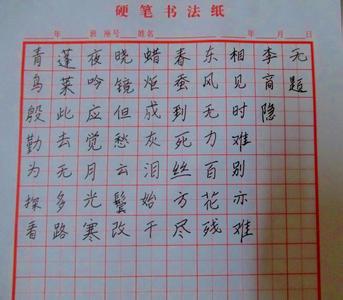 硬笔书法纸
年 班 座号 姓名 年 月 日
无题
李商隐
相见时难别亦难
东风无力百花残
春蚕到死丝方尽
蜡炬成灰泪始干
晓镜但愁云鬓改
夜吟应觉月光寒
蓬莱此去无多路
青鸟殷勤为探看